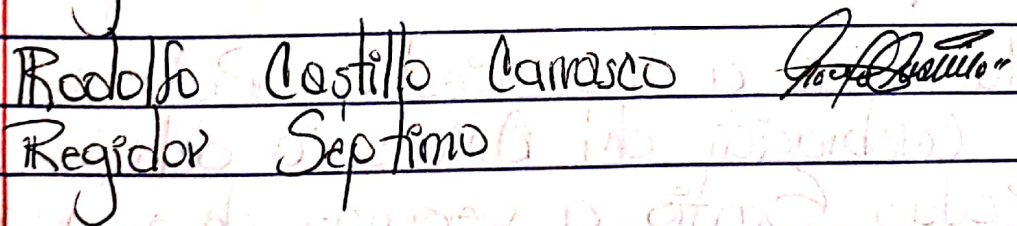 Rodolfo Castillo Carrasco
Regidor Septimo